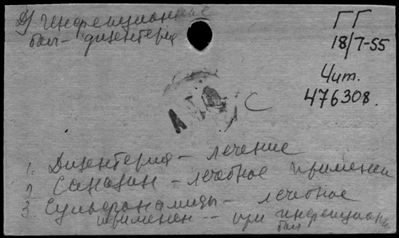 Инфекционные
бол- дизентерия
ГГ
18/7-55
Чит.
476308.
С
1. Дизентерия - лечение
2 Саназин - лечебное применен
3 Сульфонамиды - лечебное
применен -- при инфекционн
бол